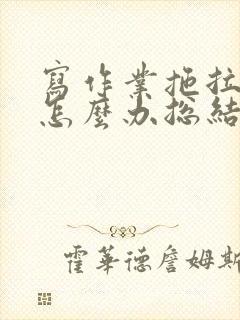 寫作業拖拉
怎麼办総結
霍華德詹姆斯